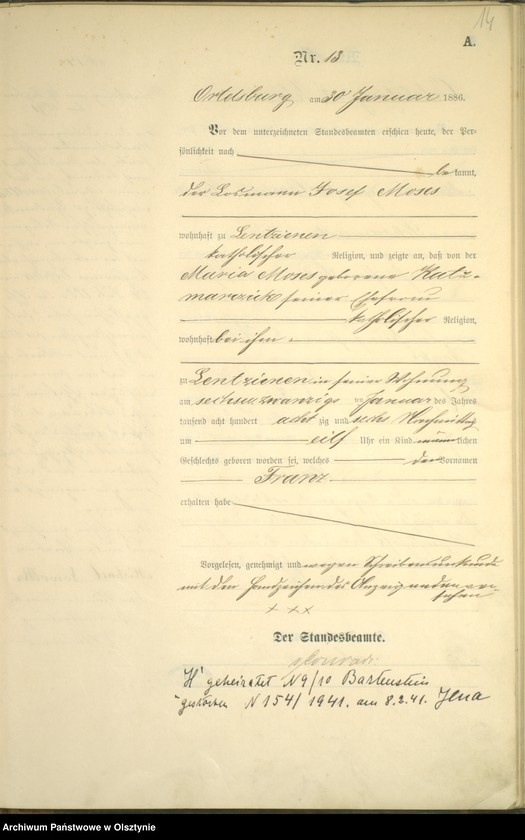 14
A.
Nr. 13
Ortelsburg am 30 Januar 1886.
Vor dem unterzeichneten Standesbeamten erschien heute, der Per-
sönlichkeit nach
be kannt,
der Losmann Josef Moses
wohnhaft zu Lentzienen
katholischer Religion, und zeigte an, daß von der
Maria Moses geborene Katz-
marczick seiner Ehefrau
katholischer Religion,
wohnhaft bei ihm
zu Lentzienen in seiner Wohnung
am sechsundzwanzigsten Januar des Jahres
tausend acht hundert acht zig und sechs Nachmittag
um eilf Uhr ein Kind männlichen
Geschlechts geboren worden sei, welches den Vornamen
Franz
erhalten habe
Vorgelesen, genehmigt und wegen Schreibensunkunde
mit den Handzeichen des Anzeigenden ver-
sehen
+ + x
Der Standesbeamte.
H geheiratet N 9/10 Bartenstein
gestorben N 154/1941. am 8.2.41. Jena
Archiwum Państwowe w Olsztynie